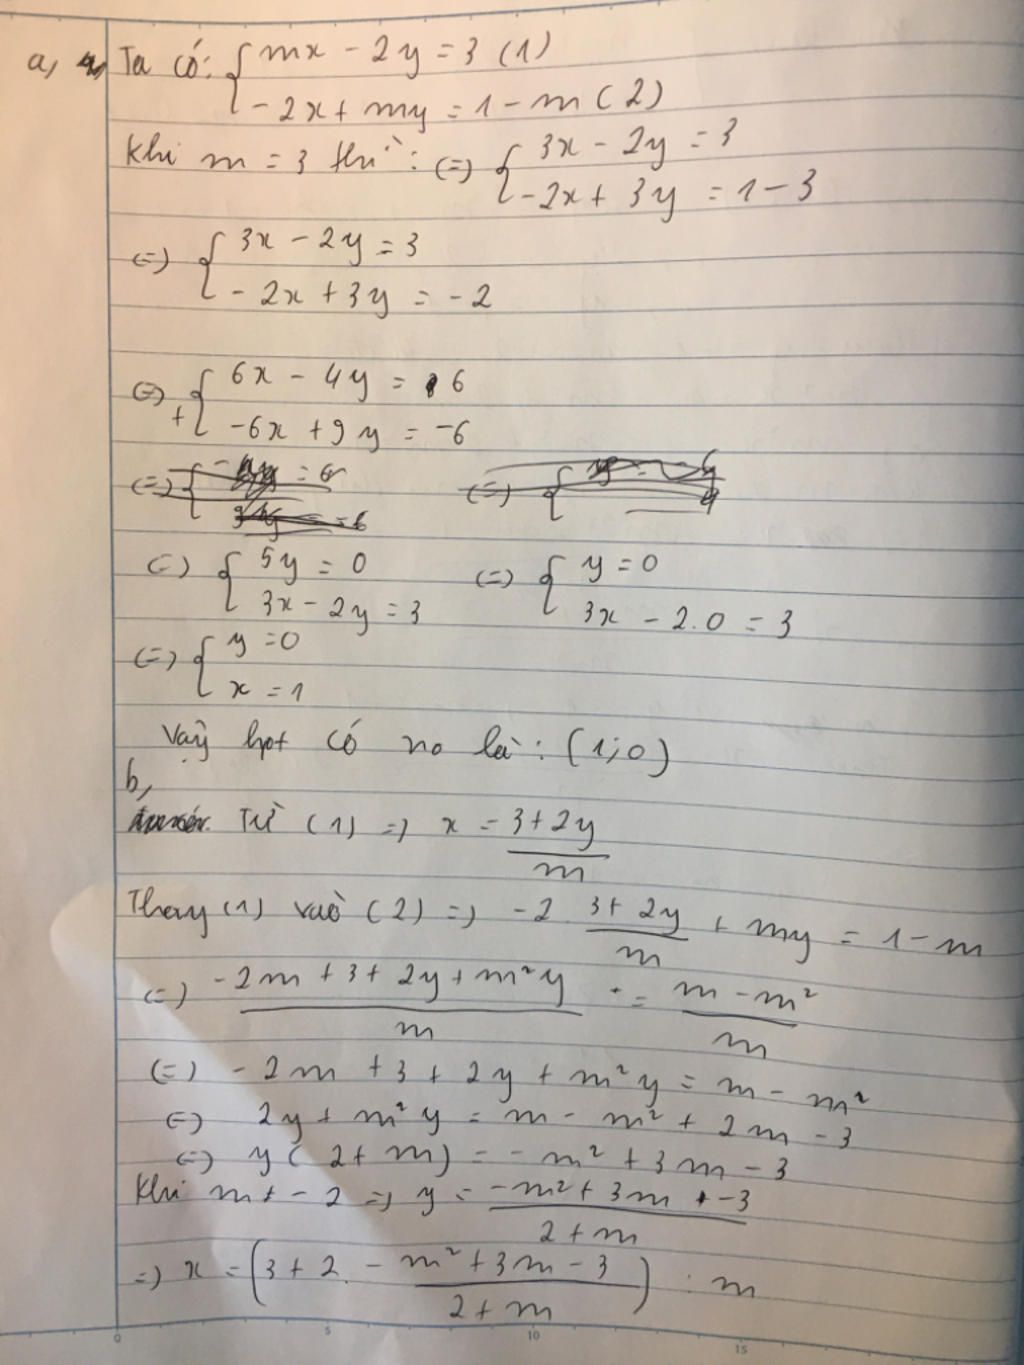 a, Ta có: { mx - 2y = 3 (1)
- 2x + my = 1 - m (2)
Khi m = 3 thì: (=) { 3x - 2y = 3
- 2x + 3y = 1 - 3
(=) { 3x - 2y = 3
- 2x + 3y = - 2
(=) { 6x - 4y = 6
+ - 6x + 9y = - 6
(=) { 5y = 0 (=) { y = 0
3x - 2y = 3 3x - 2.0 = 3
(=) { y = 0
x = 1
Vậy hpt có no là: (1; 0)
b,
Từ (1) => x = \frac{3 + 2y}{m}
Thay (1) vào (2) => - 2 . \frac{3 + 2y}{m} + my = 1 - m
(=) \frac{- 2m + 3 + 2y + m²y}{m} = \frac{m - m²}{m}
(=) - 2m + 3 + 2y + m²y = m - m²
(=) 2y + m²y = m - m² + 2m - 3
(=) y ( 2 + m) = - m² + 3m - 3
Khi m ≠ - 2 => y = \frac{- m² + 3m - 3}{2 + m}
=) x = ( 3 + 2 . - \frac{m² + 3m - 3}{2 + m} ) : m
0 5 10 15